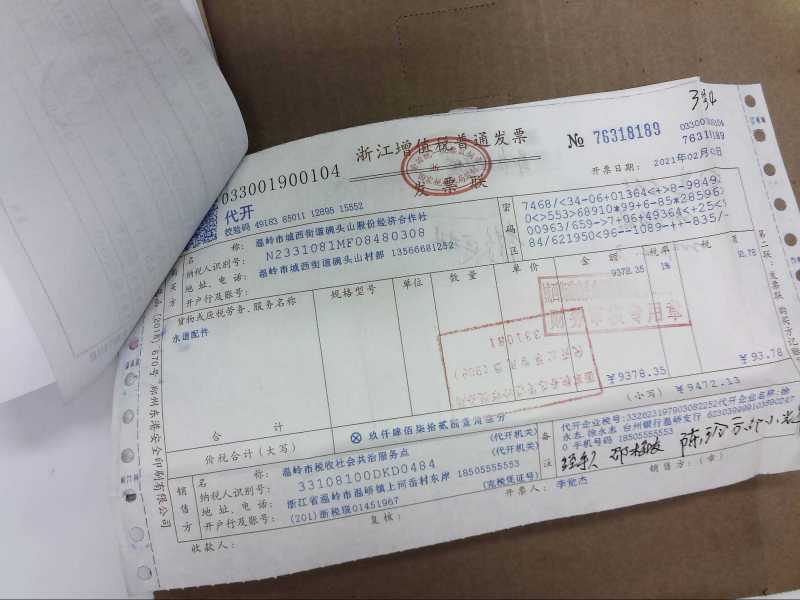 3号
浙江增值税普通发票
发票联
033001900104
代开
校验码 49183 85011 12895 15552
№ 76318189
033001900104
76318189
开票日期: 2021年02月
购买方
名 称: 温岭市城西街道碗头山股份经济合作社
纳税人识别号: N2331081MF08480308
地址、电话: 温岭市城西街道碗头山村部 13566681252
开户行及账号:
密码区
7468/<34-06+01364<+>8-9849
0<>553>68910*99+6-85*28596
00963/659->7+96+49364<+25<
84/621950<96--1089-+-835/-
货物或应税劳务、服务名称 规格型号 单位 数量 单价 金额 税率 税
水道配件 9378.35 1% 93.78
财务
331081
合 计 ¥9378.35 ¥93.78
价税合计(大写) ⊗玖仟肆佰柒拾贰圆壹角叁分 (小写) ¥9472.13
销售方
名 称: 温岭市税收社会共治服务点 (代开机关)
纳税人识别号: 33108100DKD0484 (代开机关)
地址、电话: 浙江省温岭市温峤镇上河岙村东岸 18505555553
开户行及账号: (201)浙税现01451967 (完税凭证号)
备注
代开企业税号:332623197903082252代开企业名称:徐
永志 徐永志 台州银行温峤支行
0 手机号码 18505555553
经手人
收款人: 复核: 开票人: 李能杰 销售方:(章)
第二联:发票联 购买方记账
(2018)670号 郑州东港安全印刷有限公司